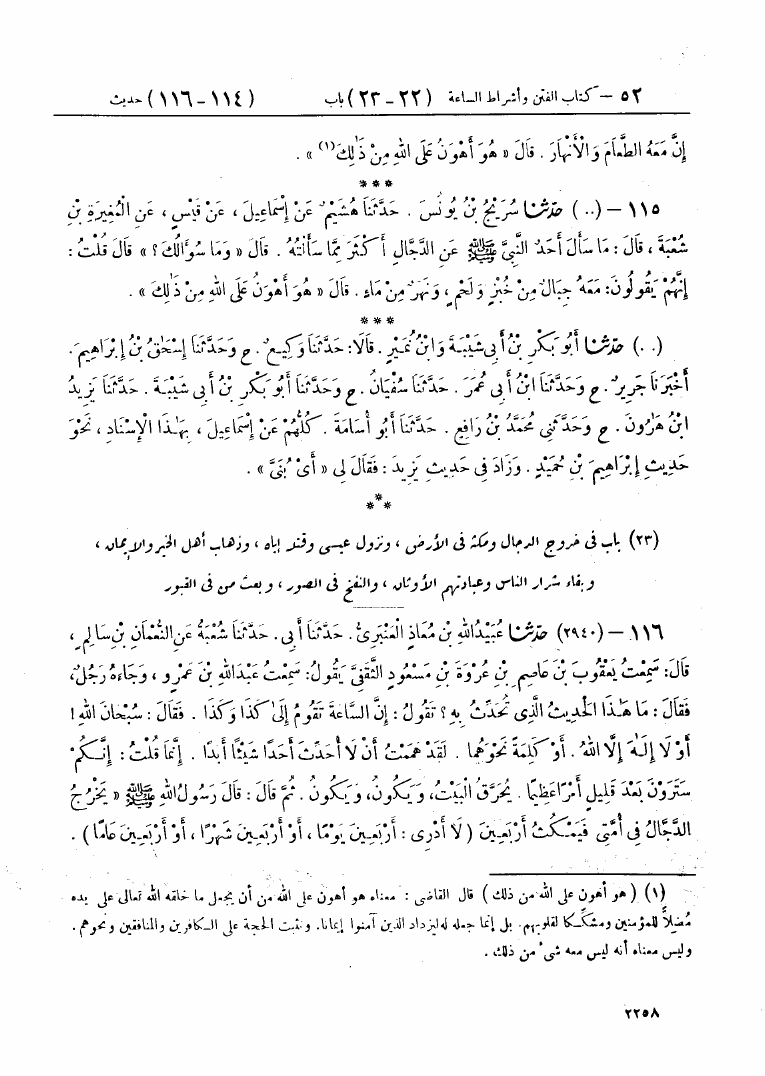 ٥٢ – كتاب الفتن وأشراط الساعة (٢٢ – ٢٣) باب (١١٤ – ١١٦) حديث
إِنَّ مَعَهُ الطَّعَامَ وَالْأَنْهَارَ . قَالَ « هُوَ أَهْوَنُ عَلَى اللهِ مِنْ ذَٰلِكَ(١) » .
***
١١٥ – (..) حدّثنا سُرَيْجُ بْنُ يُونُسَ . حَدَّثَنَا هُشَيْمٌ عَنْ إِسْمَاعِيلَ ، عَنْ قَيْسٍ ، عَنِ الْمُغِيرَةِ بْنِ
شُعْبَةَ ، قَالَ : مَا سَأَلَ أَحَدٌ النَّبِيَّ ﷺ عَنِ الدَّجَّالِ أَكْثَرَ مِمَّا سَأَلْتُهُ . قَالَ « وَمَا سُؤَالُكَ ؟ » قَالَ قُلْتُ :
إِنَّهُمْ يَقُولُونَ : مَعَهُ جِبَالٌ مِنْ خُبْزٍ وَلَحْمٍ ، وَنَهَرٌ مِنْ مَاءٍ . قَالَ « هُوَ أَهْوَنُ عَلَى اللهِ مِنْ ذَٰلِكَ » .
***
(..) حدّثنا أَبُو بَكْرِ بْنُ أَبِي شَيْبَةَ وَابْنُ نُمَيْرٍ . قَالَا : حَدَّثَنَا وَكِيعٌ . ح وَحَدَّثَنَا إِسْحَٰقُ بْنُ إِبْرَاهِيمَ .
أَخْبَرَنَا جَرِيرٌ . ح وَحَدَّثَنَا ابْنُ أَبِي عُمَرَ . حَدَّثَنَا سُفْيَانُ . ح وَحَدَّثَنَا أَبُو بَكْرِ بْنُ أَبِي شَيْبَةَ . حَدَّثَنَا يَزِيدُ
ابْنُ هَٰرُونَ . ح وَحَدَّثَنِي مُحَمَّدُ بْنُ رَافِعٍ . حَدَّثَنَا أَبُو أُسَامَةَ . كُلُّهُمْ عَنْ إِسْمَاعِيلَ ، بِهَٰذَا الْإِسْنَادِ ، نَحْوَ
حَدِيثِ إِبْرَاهِيمَ بْنِ حُمَيْدٍ . وَزَادَ فِي حَدِيثِ يَزِيدَ : فَقَالَ لِي « أَيْ بُنَيَّ » .
***
(٢٣) باب فى خروج الدجال ومكثه فى الأرض ، ونزول عيسى وقتله إياه ، وذهاب أهل الخير والإيمان ،
وبقاء شرار الناس وعبادتهم الأوثان ، والنفخ فى الصور ، وبعث من فى القبور
١١٦ – (٢٩٤٠) حدّثنا عُبَيْدُ اللهِ بْنُ مُعَاذٍ الْعَنْبَرِيُّ . حَدَّثَنَا أَبِي . حَدَّثَنَا شُعْبَةُ عَنِ النُّعْمَانِ بْنِ سَالِمٍ ،
قَالَ : سَمِعْتُ يَعْقُوبَ بْنَ عَاصِمِ بْنِ عُرْوَةَ بْنِ مَسْعُودٍ الثَّقَفِيَّ يَقُولُ : سَمِعْتُ عَبْدَ اللهِ بْنَ عَمْرٍو ، وَجَاءَهُ رَجُلٌ ،
فَقَالَ : مَا هَٰذَا الْحَدِيثُ الَّذِي تُحَدِّثُ بِهِ ؟ تَقُولُ : إِنَّ السَّاعَةَ تَقُومُ إِلَىٰ كَذَا وَكَذَا . فَقَالَ : سُبْحَانَ اللهِ !
أَوْ لَا إِلَٰهَ إِلَّا اللهُ . أَوْ كَلِمَةً نَحْوَهُمَا . لَقَدْ هَمَمْتُ أَنْ لَا أُحَدِّثَ أَحَدًا شَيْئًا أَبَدًا . إِنَّمَا قُلْتُ : إِنَّكُمْ
سَتَرَوْنَ بَعْدَ قَلِيلٍ أَمْرًا عَظِيمًا . يُحَرَّقُ الْبَيْتُ ، وَيَكُونُ ، وَيَكُونُ . ثُمَّ قَالَ : قَالَ رَسُولُ اللهِ ﷺ « يَخْرُجُ
الدَّجَّالُ فِي أُمَّتِي فَيَمْكُثُ أَرْبَعِينَ ( لَا أَدْرِي : أَرْبَعِينَ يَوْمًا ، أَوْ أَرْبَعِينَ شَهْرًا ، أَوْ أَرْبَعِينَ عَامًا ) .
(١) ( هو أهون على الله من ذلك ) قال القاضى : معناه هو أهون على الله من أن يجعل ما خلقه الله تعالى على يده
مُضِلًّا للمؤمنين ومشككا لقلوبهم . بل إنما جعله له ليزداد الذين آمنوا إيمانا . ونثبت الحجة على الكافرين والمنافقين ونحوهم .
وليس معناه أنه ليس معه شىء من ذلك .
٢٢٥٨